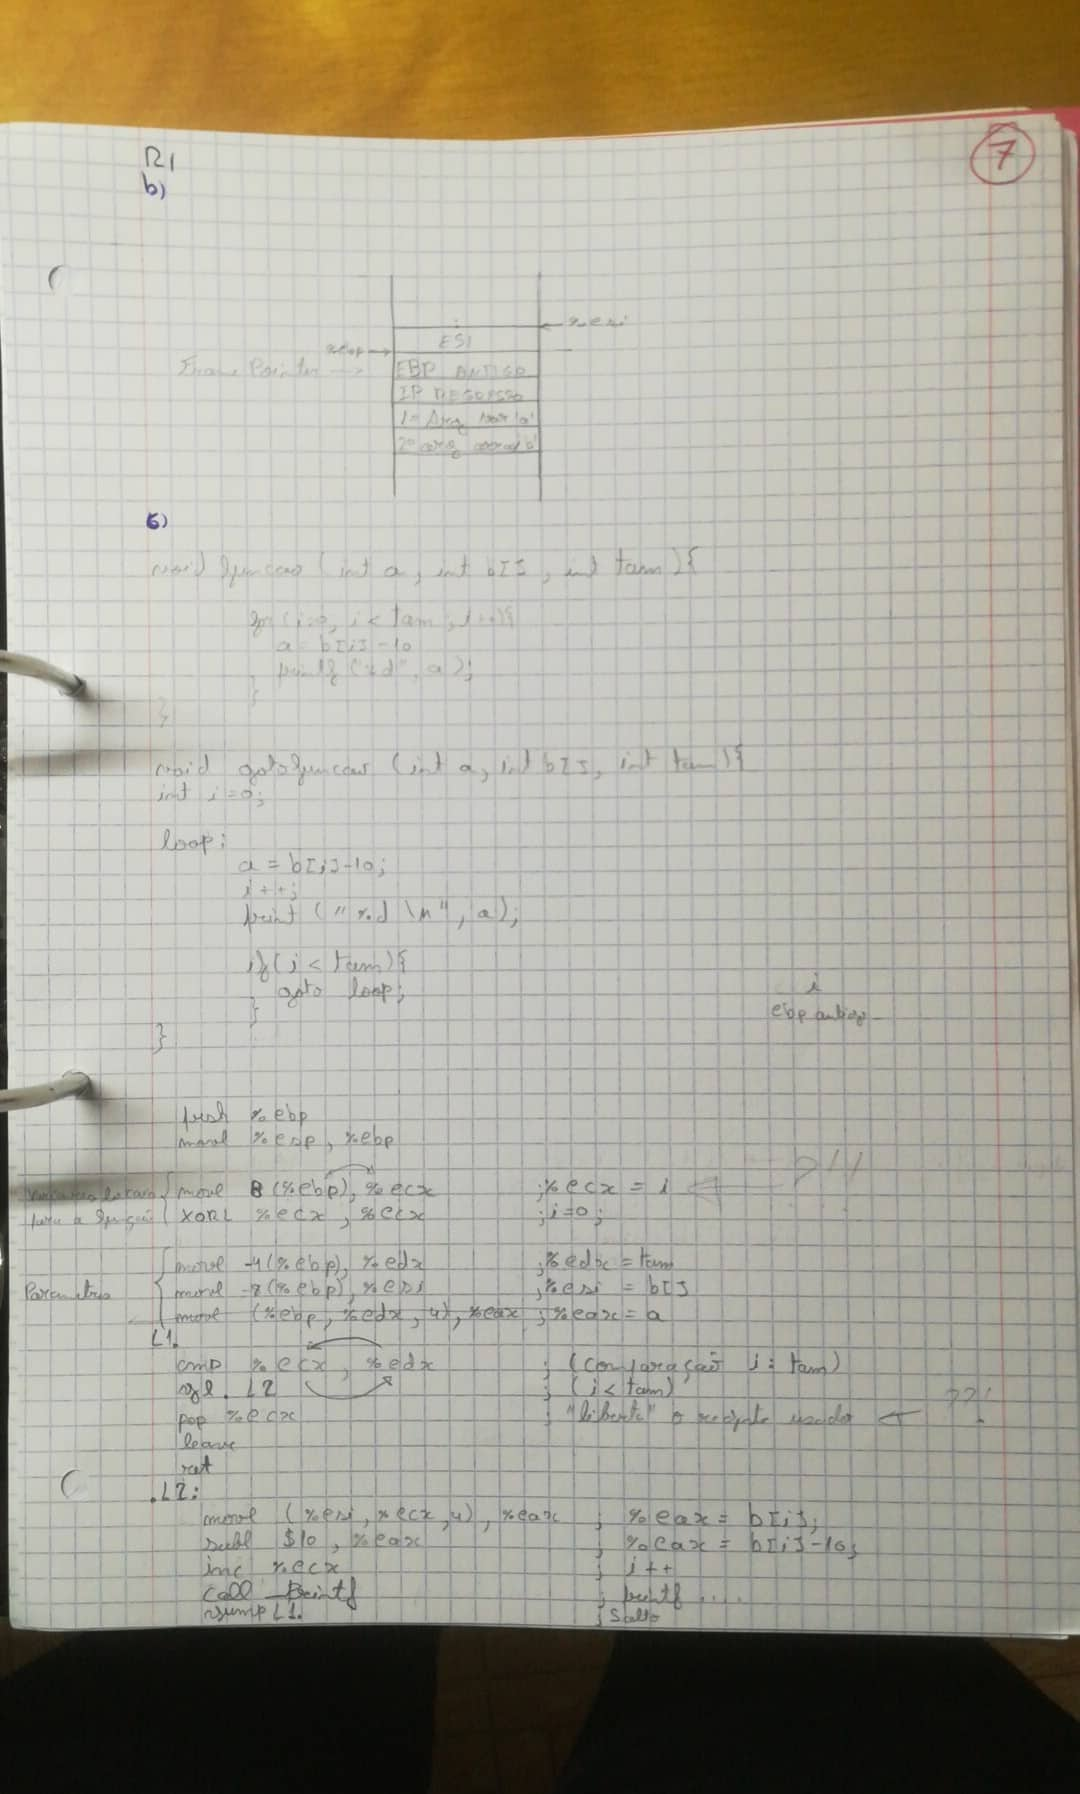 R1
7
b)
%esi
ESI
%ebp →
Frame Pointer → EBP ANTIGO
IP REGRESSO
1º Arg var 'a'
2º arg 'b'
6)
void funcao (int a, int b[], int tam){
for (i=0, i < tam; i++){
a = b[i] -10
printf ("%d", a);
}
}
void gotofuncao (int a, int b[], int tam){
int i=0;
loop:
a = b[i]-10;
i++;
print ("%d \n", a);
if(i < tam){
goto loop;
}
}
i
ebp antigo
push %ebp
movl %esp, %ebp
para a função
movl 8(%ebp), %ecx ;%ecx = i
XORL %ecx, %ecx ;i=0;
Parametros
movl -4(%ebp), %edx ;%edx = tam
movl -8(%ebp), %esi ;%esi = b[]
movl (%ebp, %edx, 4), %eax ;%eax = a
L1.
cmp %ecx, %edx ; (comparação i : tam)
jl. L2 ; (i < tam)
pop %ecx ; "liberta" o registo usado ← ??!
leave
ret
.L2:
movl (%esi, %ecx, 4), %eax ; %eax = b[i];
subl $10, %eax ; %eax = b[i]-10;
inc %ecx ; i++
call printf ; printf ....
jump L1. ; Salto